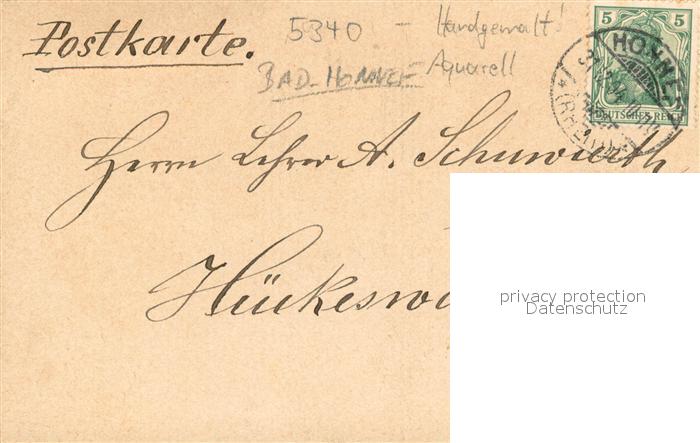 Postkarte.
5340 - Handgemalt!
BAD-HONNEF Aquarell
5 5
DEUTSCHES REICH
HONNEF
(RHEIN)
Herrn Lehrer A.
Hückeswa
privacy protection
Datenschutz